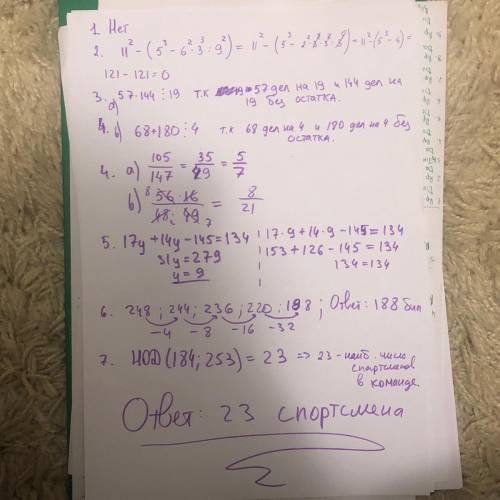 1. Нет
2. 11² - (5³ - 6²·3³ : 9²) = 11² - (5³ - = 11² - (5³ - 4) =
121 - 121 = 0
3. а) 57·144 ⋮ 19 т.к 57 дел на 19 и 144 дел на
19 без остатка.
4. b) 68+180 ⋮ 4 т.к 68 дел на 4 и 180 дел на 4 без
остатка.
4. а) 105/147 = 35/49 = 5/7
b) 56·16/48·49 = 8/21
5. 17y + 14y - 145 = 134 17·9 + 14·9 - 145 = 134
31y = 279 153 + 126 - 145 = 134
y = 9 134 = 134
6. 248 ; 244 ; 236 ; 220 ; 188 ; Ответ: 188 бил
-4 -8 -16 -32
7. НОД (184; 253) = 23 => 23 - наиб. число
спортсменов
в команде.
Ответ: 23 спортсмена